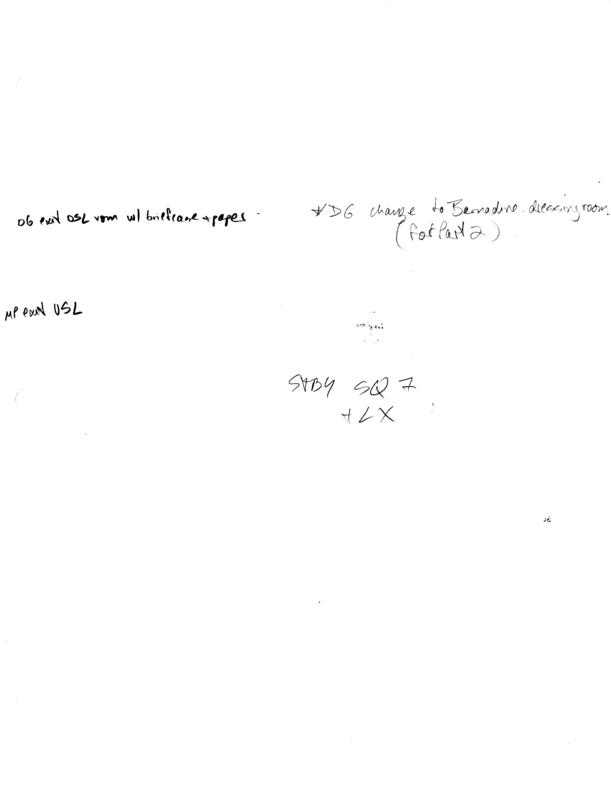 DG exit DSL vom w/ briefcase + paper.
* DG change to Bernadine dressing room
(for Part 2)
MP exit USL
STBY SQ 7
+ LX